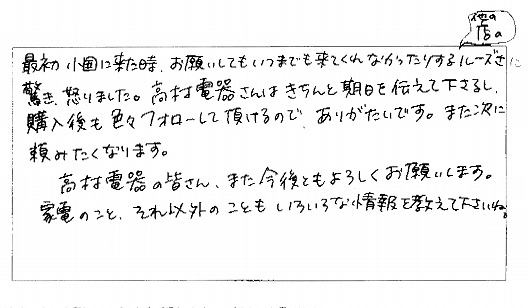 他の
店の
最初 小国に来た時、お願いしてもいつまでも来てくれなかったりするルーズさに
驚き、怒りました。高村電器さんはきちんと期日を伝えて下さるし、
購入後も色々フォローして頂けるので、ありがたいです。また次に
頼みたくなります。
高村電器の皆さん、また今後ともよろしくお願いします。
家電のこと、それ以外のこともいろいろな情報を教えて下さいね。